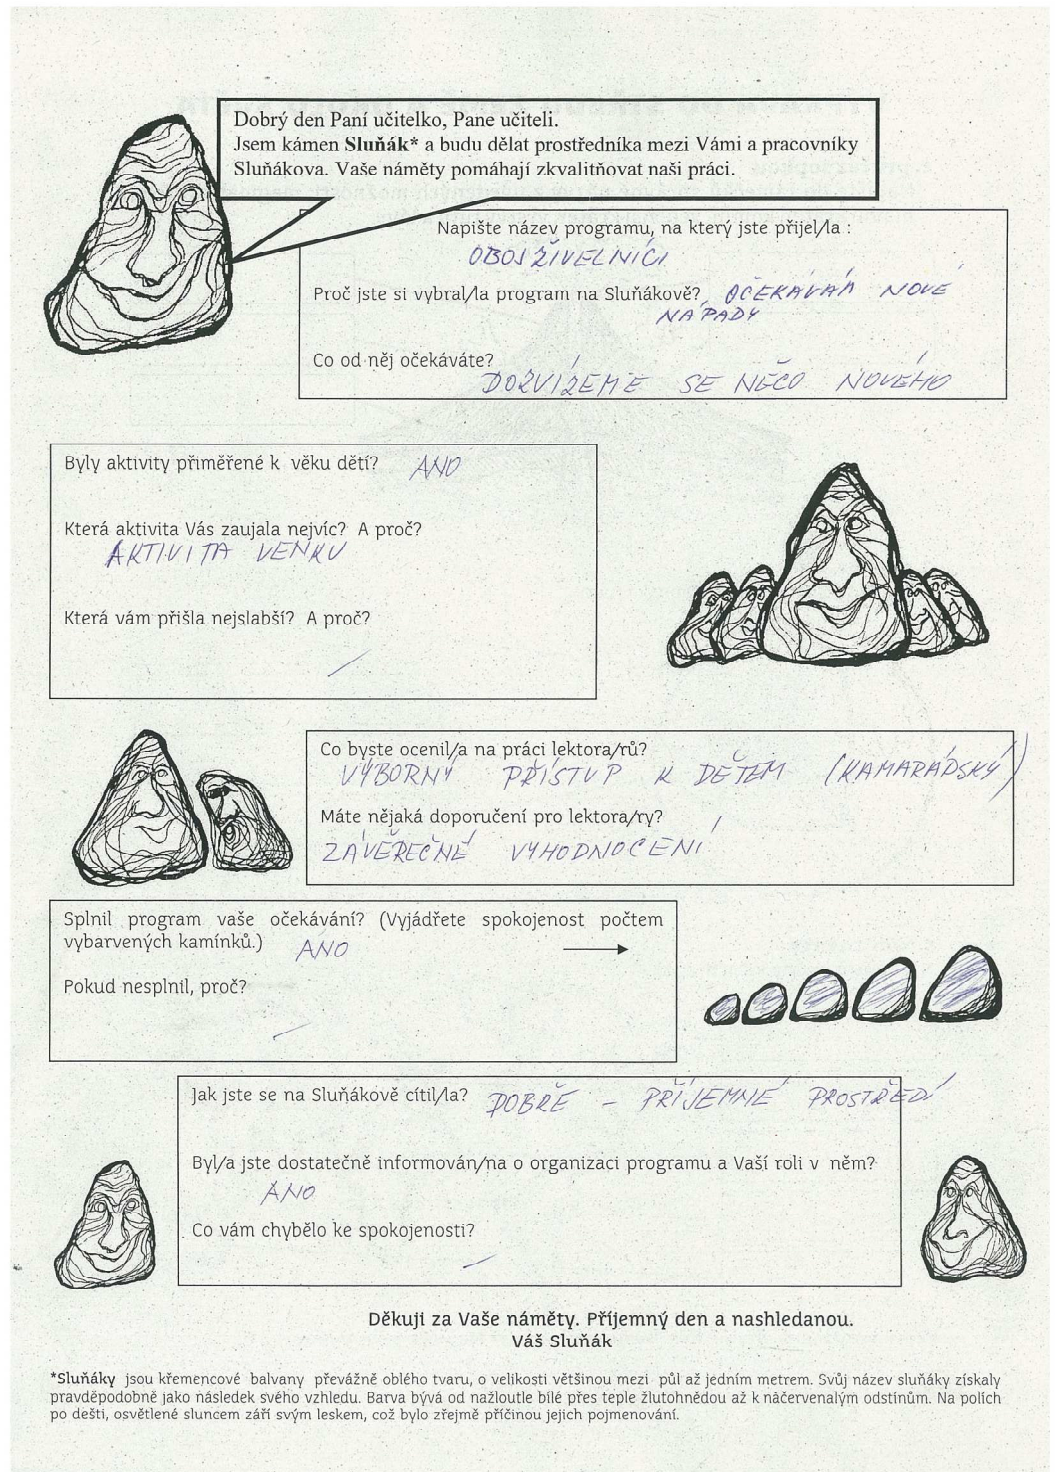 Dobrý den Paní učitelko, Pane učiteli.
Jsem kámen Sluňák* a budu dělat prostředníka mezi Vámi a pracovníky
Sluňákova. Vaše náměty pomáhají zkvalitňovat naši práci.
Napište název programu, na který jste přijel/la :
OBOJŽIVELNÍCI
Proč jste si vybral/la program na Sluňákově? OČEKÁVÁM NOVÉ
NÁPADY
Co od něj očekáváte?
DOZVÍŽEME SE NĚCO NOVÉHO
Byly aktivity přiměřené k věku dětí? ANO
Která aktivita Vás zaujala nejvíc? A proč?
AKTIVITA VENKU
Která vám přišla nejslabší? A proč?
Co byste ocenil/a na práci lektora/rů?
VÝBORNÝ PŘÍSTUP K DĚTEM (KAMARÁDSKÝ)
Máte nějaká doporučení pro lektora/ry?
ZÁVĚREČNÉ VYHODNOCENÍ
Splnil program vaše očekávání? (Vyjádřete spokojenost počtem
vybarvených kamínků.) ANO
Pokud nesplnil, proč?
Jak jste se na Sluňákově cítil/la? DOBŘE – PŘÍJEMNÉ PROSTŘEDÍ
Byl/a jste dostatečně informován/na o organizaci programu a Vaší roli v něm?
ANO
Co vám chybělo ke spokojenosti?
Děkuji za Vaše náměty. Příjemný den a nashledanou.
Váš Sluňák
*Sluňáky jsou křemencové balvany převážně oblého tvaru, o velikosti většinou mezi půl až jedním metrem. Svůj název sluňáky získaly
pravděpodobně jako následek svého vzhledu. Barva bývá od nažloutle bílé přes teple žlutohnědou až k načervenalým odstínům. Na polích
po dešti, osvětlené sluncem září svým leskem, což bylo zřejmě příčinou jejich pojmenování.